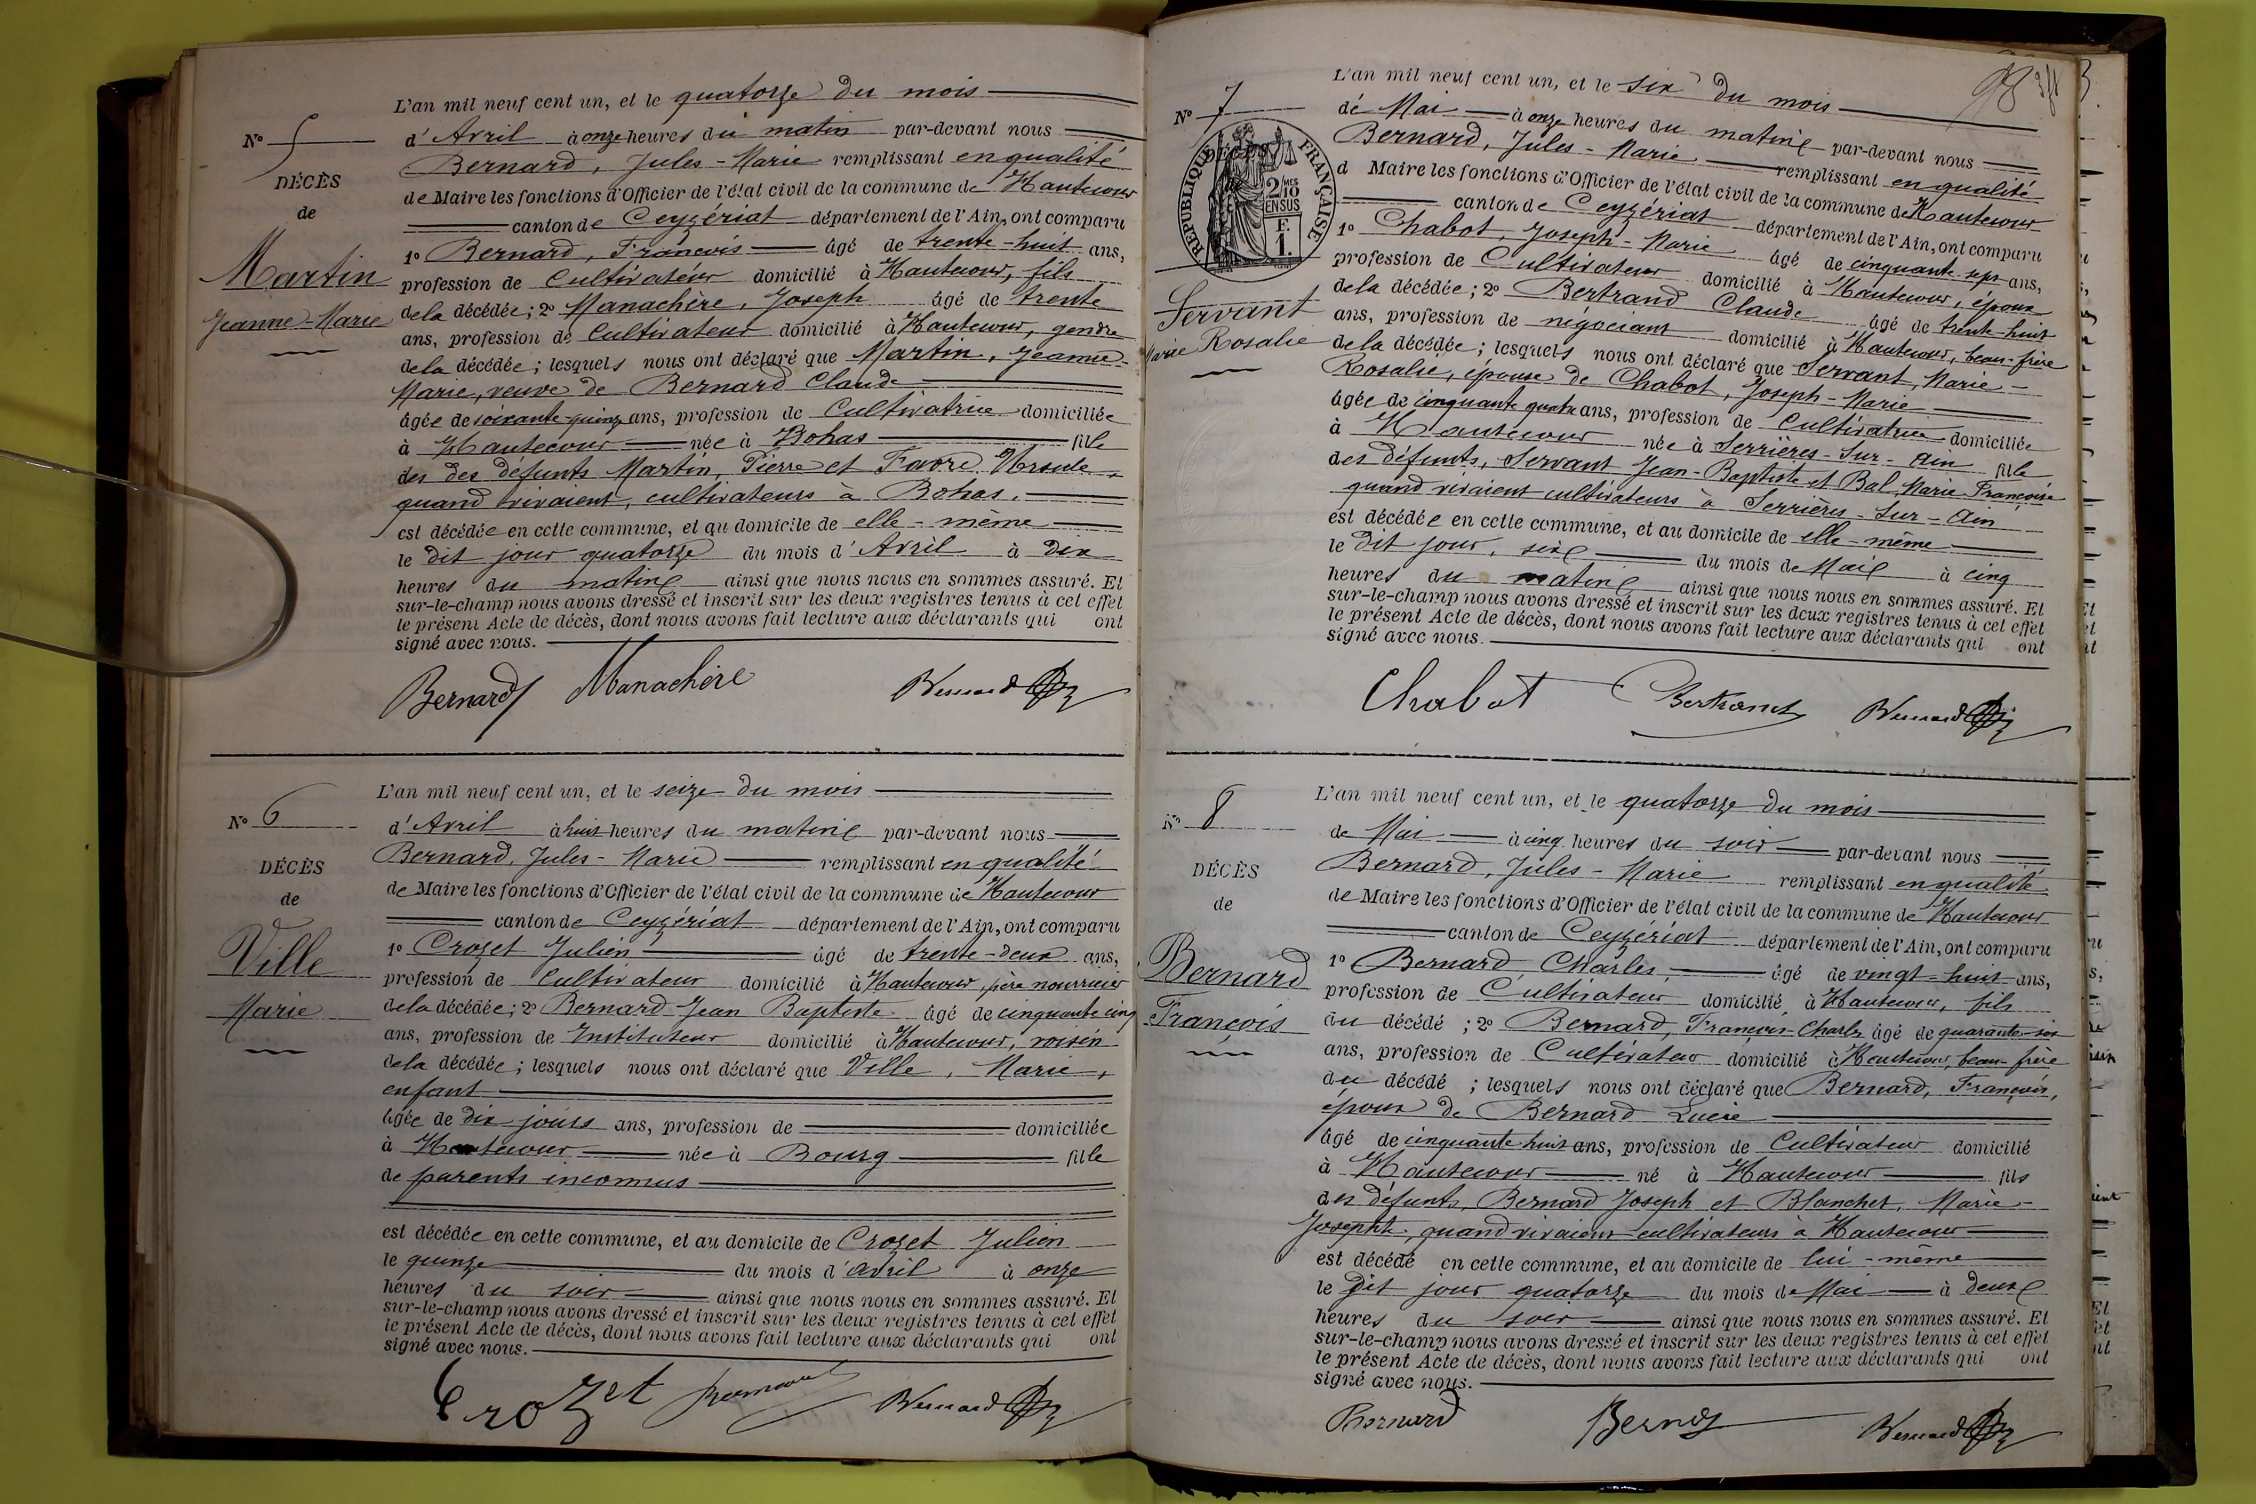 L'an mil neuf cent un, et le quatorze du mois
N° 5
d'Avril à onze heures du matin par-devant nous
Bernard, Jules-Marie remplissant en qualité
DÉCÈS
de Maire les fonctions d'Officier de l'état civil de la commune de Hautecour
de
canton de Ceyzériat département de l'Ain, ont comparu
1° Bernard, François âgé de trente-huit ans,
Martin
profession de Cultivateur domicilié à Hautecour, fils
Jeanne-Marie
de la décédée; 2° Manachère, Joseph âgé de trente
ans, profession de Cultivateur domicilié à Hautecour, gendre
de la décédée; lesquels nous ont déclaré que Martin, Jeanne-
Marie, veuve de Bernard Claude
âgée de soixante-quinze ans, profession de Cultivatrice domiciliée
à Hautecour née à Bohas fille
des des défunts Martin, Pierre et Favre Ursule,
quand vivaient, cultivateurs à Bohas.
est décédée en cette commune, et au domicile de elle-même
le dit jour quatorze du mois d'Avril à dix
heures du matin ainsi que nous nous en sommes assuré. Et
sur-le-champ nous avons dressé et inscrit sur les deux registres tenus à cet effet
le présent Acte de décès, dont nous avons fait lecture aux déclarants qui ont
signé avec nous.
Bernard Manachère Bernard
L'an mil neuf cent un, et le seize du mois
N° 6
d'Avril à huit heures du matin par-devant nous
Bernard, Jules-Marie remplissant en qualité
DÉCÈS
de Maire les fonctions d'Officier de l'état civil de la commune de Hautecour
de
canton de Ceyzériat département de l'Ain, ont comparu
1° Crozet Julien âgé de trente-deux ans,
Ville
profession de Cultivateur domicilié à Hautecour, père nourricier
Marie
de la décédée; 2° Bernard Jean Baptiste âgé de cinquante cinq
ans, profession de Instituteur domicilié à Hautecour, voisin
de la décédée; lesquels nous ont déclaré que Ville, Marie,
enfant
âgée de dix jours ans, profession de domiciliée
à Hautecour née à Bourg fille
de parents inconnus
est décédée en cette commune, et au domicile de Crozet Julien
le quinze du mois d'avril à onze
heures du soir ainsi que nous nous en sommes assuré. Et
sur-le-champ nous avons dressé et inscrit sur les deux registres tenus à cet effet
le présent Acte de décès, dont nous avons fait lecture aux déclarants qui ont
signé avec nous.
Crozet Bernard Bernard
L'an mil neuf cent un, et le six du mois
N° 7
de Mai à onze heures du matin par-devant nous
Bernard, Jules-Marie remplissant en qualité
DÉCÈS
RÉPUBLIQUE FRANÇAISE
2 MES 10
EN SUS
F.
1.
d Maire les fonctions d'Officier de l'état civil de la commune de Hautecour
canton de Ceyzériat département de l'Ain, ont comparu
1° Chabot, Joseph-Marie âgé de cinquante-sept ans,
profession de Cultivateur domicilié à Hautecour, époux
Servant
de la décédée; 2° Bertrand Claude âgé de trente-huit
Marie Rosalie
ans, profession de négociant domicilié à Hautecour, beau-frère
de la décédée; lesquels nous ont déclaré que Servant, Marie-
Rosalie, épouse de Chabot, Joseph-Marie
âgée de cinquante quatre ans, profession de Cultivatrice domiciliée
à Hautecour née à Serrières-Sur-Ain fille
des défunts, Servant Jean-Baptiste et Bal, Marie Françoise
quand vivaient cultivateurs à Serrières-Sur-Ain
est décédée en cette commune, et au domicile de elle-même
le dit jour, six du mois de Mai à cinq
heures du matin ainsi que nous nous en sommes assuré. Et
sur-le-champ nous avons dressé et inscrit sur les deux registres tenus à cet effet
le présent Acte de décès, dont nous avons fait lecture aux déclarants qui ont
signé avec nous.
Chabot Bertrand Bernard
L'an mil neuf cent un, et le quatorze du mois
N° 8
de Mai à cinq heures du soir par-devant nous
Bernard, Jules-Marie remplissant en qualité
DÉCÈS
de Maire les fonctions d'Officier de l'état civil de la commune de Hautecour
de
canton de Ceyzériat département de l'Ain, ont comparu
1° Bernard, Charles, âgé de vingt-huit ans,
Bernard
profession de Cultivateur domicilié à Hautecour, fils
François
du décédé; 2° Bernard, François-Charles âgé de quarante-six
ans, profession de Cultivateur domicilié à Hautecour, beau-frère
du décédé; lesquels nous ont déclaré que Bernard, François,
époux de Bernard Lucie
âgé de cinquante-huit ans, profession de Cultivateur domicilié
à Hautecour né à Hautecour fils
des défunts, Bernard Joseph et Blanchet, Marie-
Josephte, quand vivaient cultivateurs à Hautecour
est décédé en cette commune, et au domicile de lui-même
le dit jour quatorze du mois de Mai à deux
heures du soir ainsi que nous nous en sommes assuré. Et
sur-le-champ nous avons dressé et inscrit sur les deux registres tenus à cet effet
le présent Acte de décès, dont nous avons fait lecture aux déclarants qui ont
signé avec nous.
Bernard Bernard Bernard